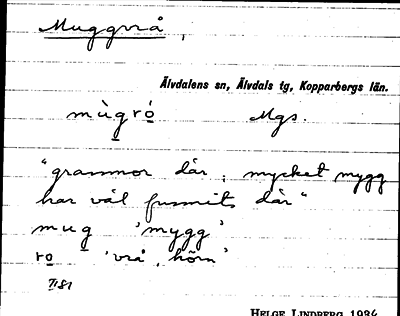 Muggvrå,
Älvdalens sn, Älvdals tg, Kopparbergs län.
mùgró Mgs.
"grammor där, mycket mygg
har väl funnits där"
mug 'mygg'
ro 'vrå, hörn'
HELGE LINDBERG 1934